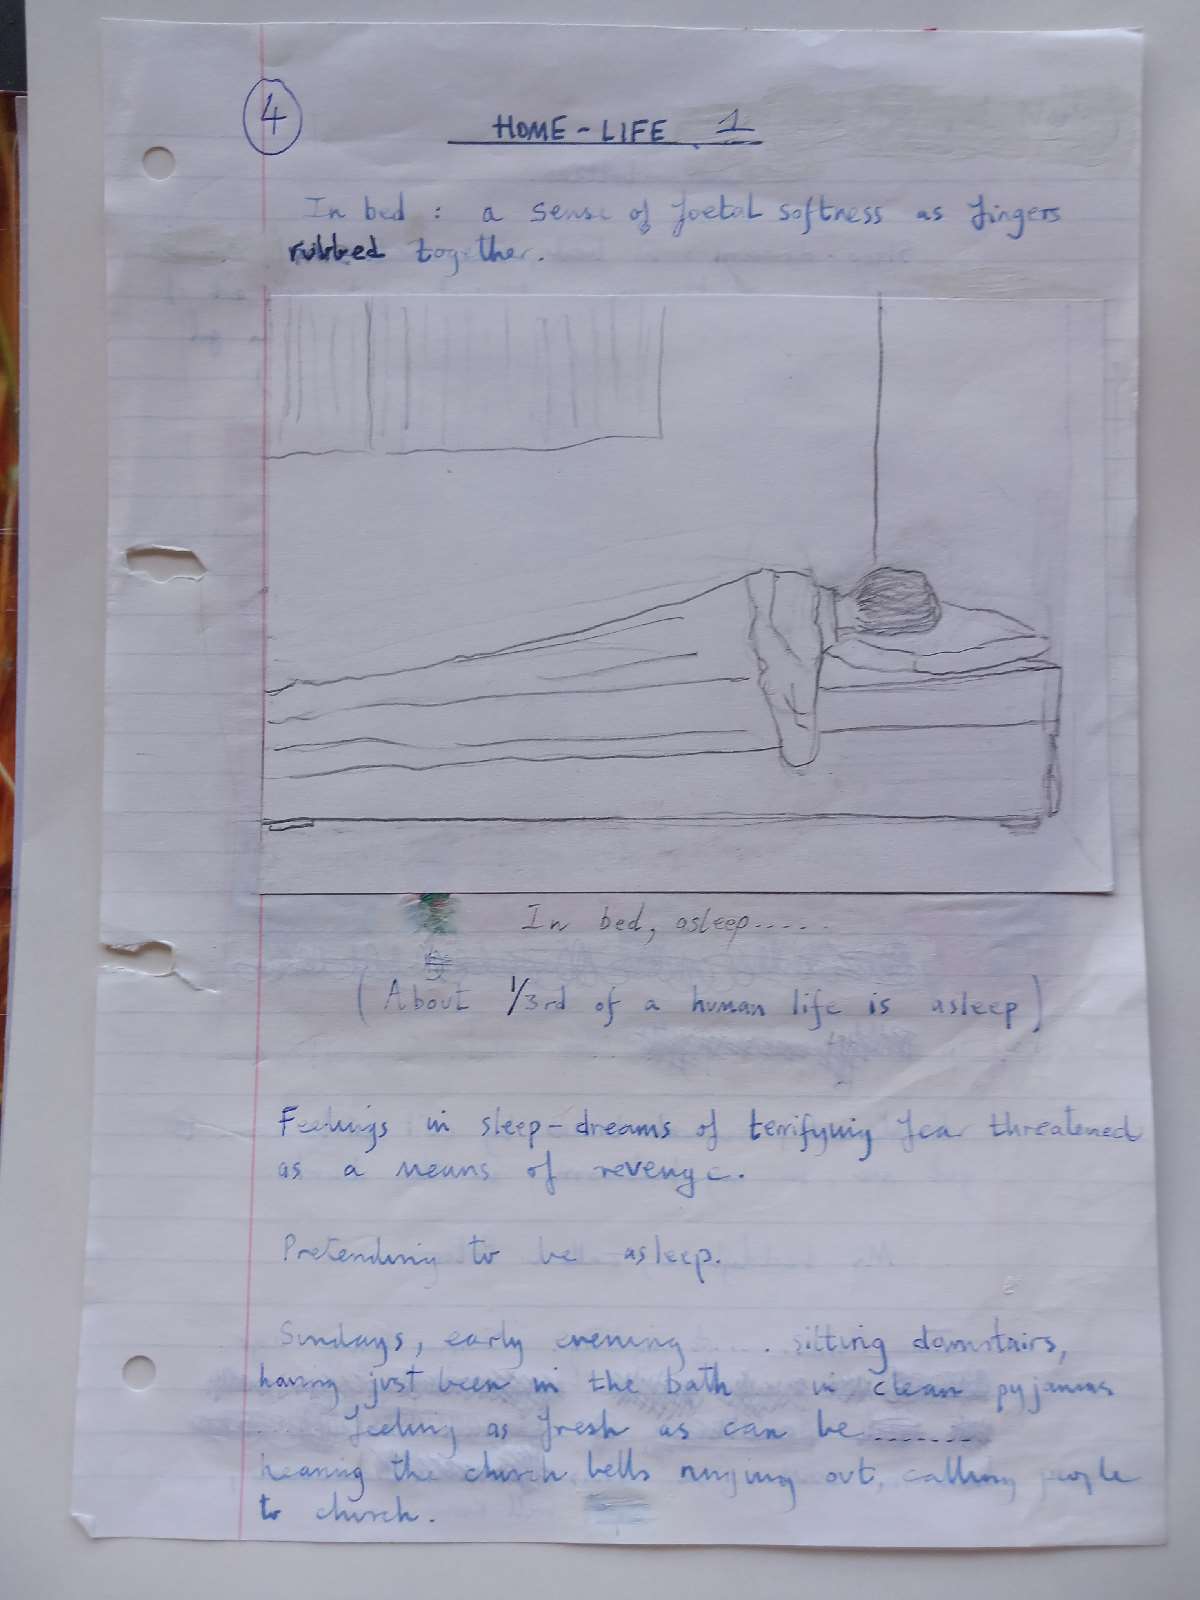 4
HOME-LIFE 1
In bed : a sense of foetal softness as fingers
rubbed together.
In bed, asleep.....
(About 1/3rd of a human life is asleep)
Feelings in sleep-dreams of terrifying fear threatened
as a means of revenge.
Pretending to be asleep.
Sundays, early evening .... sitting downstairs,
having just been in the bath in clean pyjamas
.... feeling as fresh as can be .......
hearing the church bells ringing out, calling people
to church.